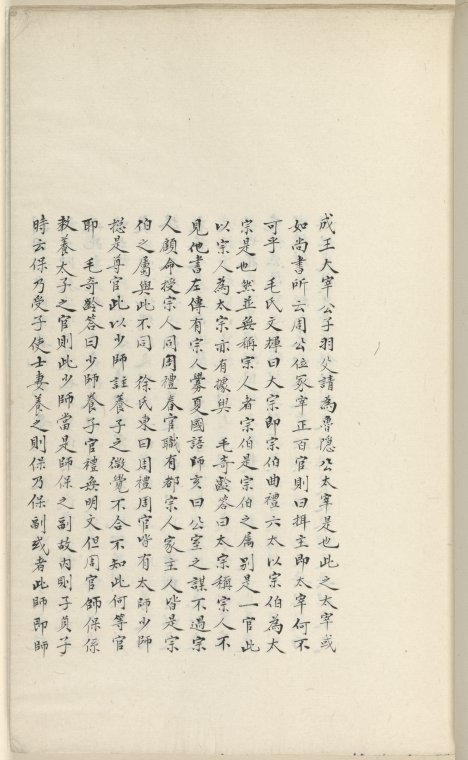 成王大宰公子羽父請為魯隱公太宰是也此之太宰或
如尚書所云周公位冢宰正百官則曰揖主即太宰何不
可乎　毛氏文輝曰大宗即宗伯曲禮六太以宗伯為太
宗是也然並無稱宗人者宗伯是宗伯之屬别是一官此
以宗人為太宗亦有據與　毛奇齡答曰太宗稱宗人不
見他書左傳有宗人釁夏國語師亥曰公室之謀不過宗
人顧命授宗人同周禮春官職有都宗人家主人皆是宗
伯之屬與此不同　徐氏東曰周禮周官皆有太師少師
揔是尊官此以少師註養子之微覺不合不知此何等官
耶　毛奇齡答曰少師養子官禮無明文但周官師保係
教養太子之官則此少師當是師保之副故内則子員子
時云保乃受子使士妻養之則保乃保副或者此師即師